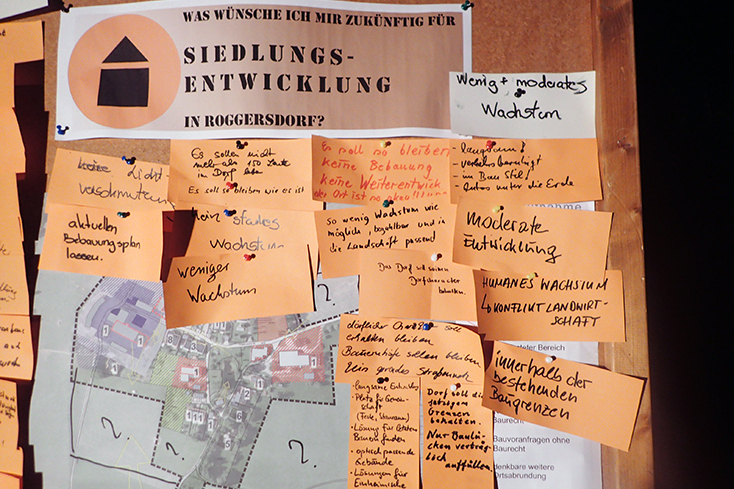 WAS WÜNSCHE ICH MIR ZUKÜNFTIG FÜR
SIEDLUNGS-
ENTWICKLUNG
IN ROGGERSDORF?
Wenig + moderates
Wachstum
keine Licht-
verschmutzung
Es sollen nicht
mehr als 150 Leute
im Dorf leben
Es soll so bleiben wie es ist
Es soll so bleiben
keine Bebauung
keine Weiterentwick
der Ort ist so
- verkehrsberuhigt
- im Bau Stil!
- Autos unter die Erde
aktuellen
Bebauungsplan
lassen.
kein starkes
Wachstum
so wenig Wachstum wie
möglich, bezahlbar und in
die Landschaft passend
moderate
Entwicklung
weniger
Wachstum
Das Dorf soll seinen
Dorfcharakter
behalten.
HUMANES WACHSTUM
↳ KONFLIKT LANDWIRT-
SCHAFT
dörflicher Charakter soll
erhalten bleiben
Bauernhöfe sollen bleiben
Kein grades Straßennetz
innerhalb der
bestehenden
Baugrenzen
- langsame
- Platz für Gemein-
schaft
(Feste,
- Lösung für
Bauern finden
- optisch passende
Gebäude
- Lösungen für
Einheimische
Dorf soll die
jetzigen
Grenzen
behalten.
Nur Baulü-
cken verträg-
lich
auffüllen.
Bereich
Bauvoranfragen ohne
Baurecht
denkbare weitere
Ortsabrundung
?
?
?
?